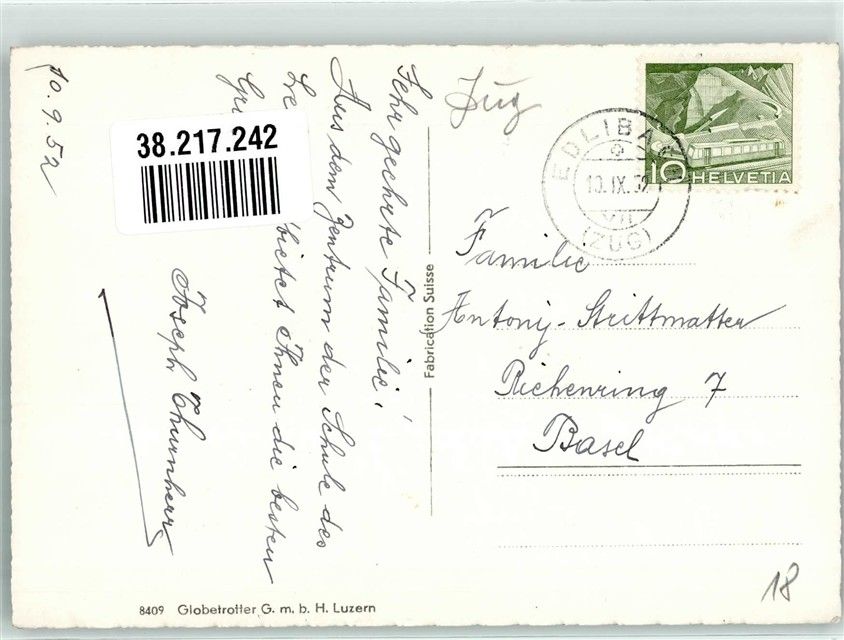 10.9.52
Sehr geehrte Familie!
Aus dem Zentrum der Schule des
bietet Ihnen die besten
Joseph Thurnherr
38.217.242
Zug
EDLIBACH
10.IX.52
(ZUG)
10 HELVETIA
Familie
Antony-Strittmatter
Richenring 7
Basel
Fabrication Suisse
18
8409 Globetrotter G. m. b. H. Luzern